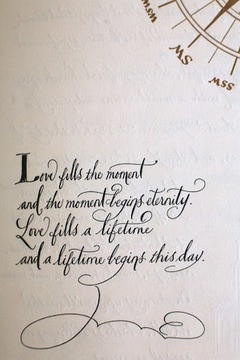 WSW
SW
SSW
Love fills the moment
and the moment begins eternity.
Love fills a lifetime
and a lifetime begins this day.